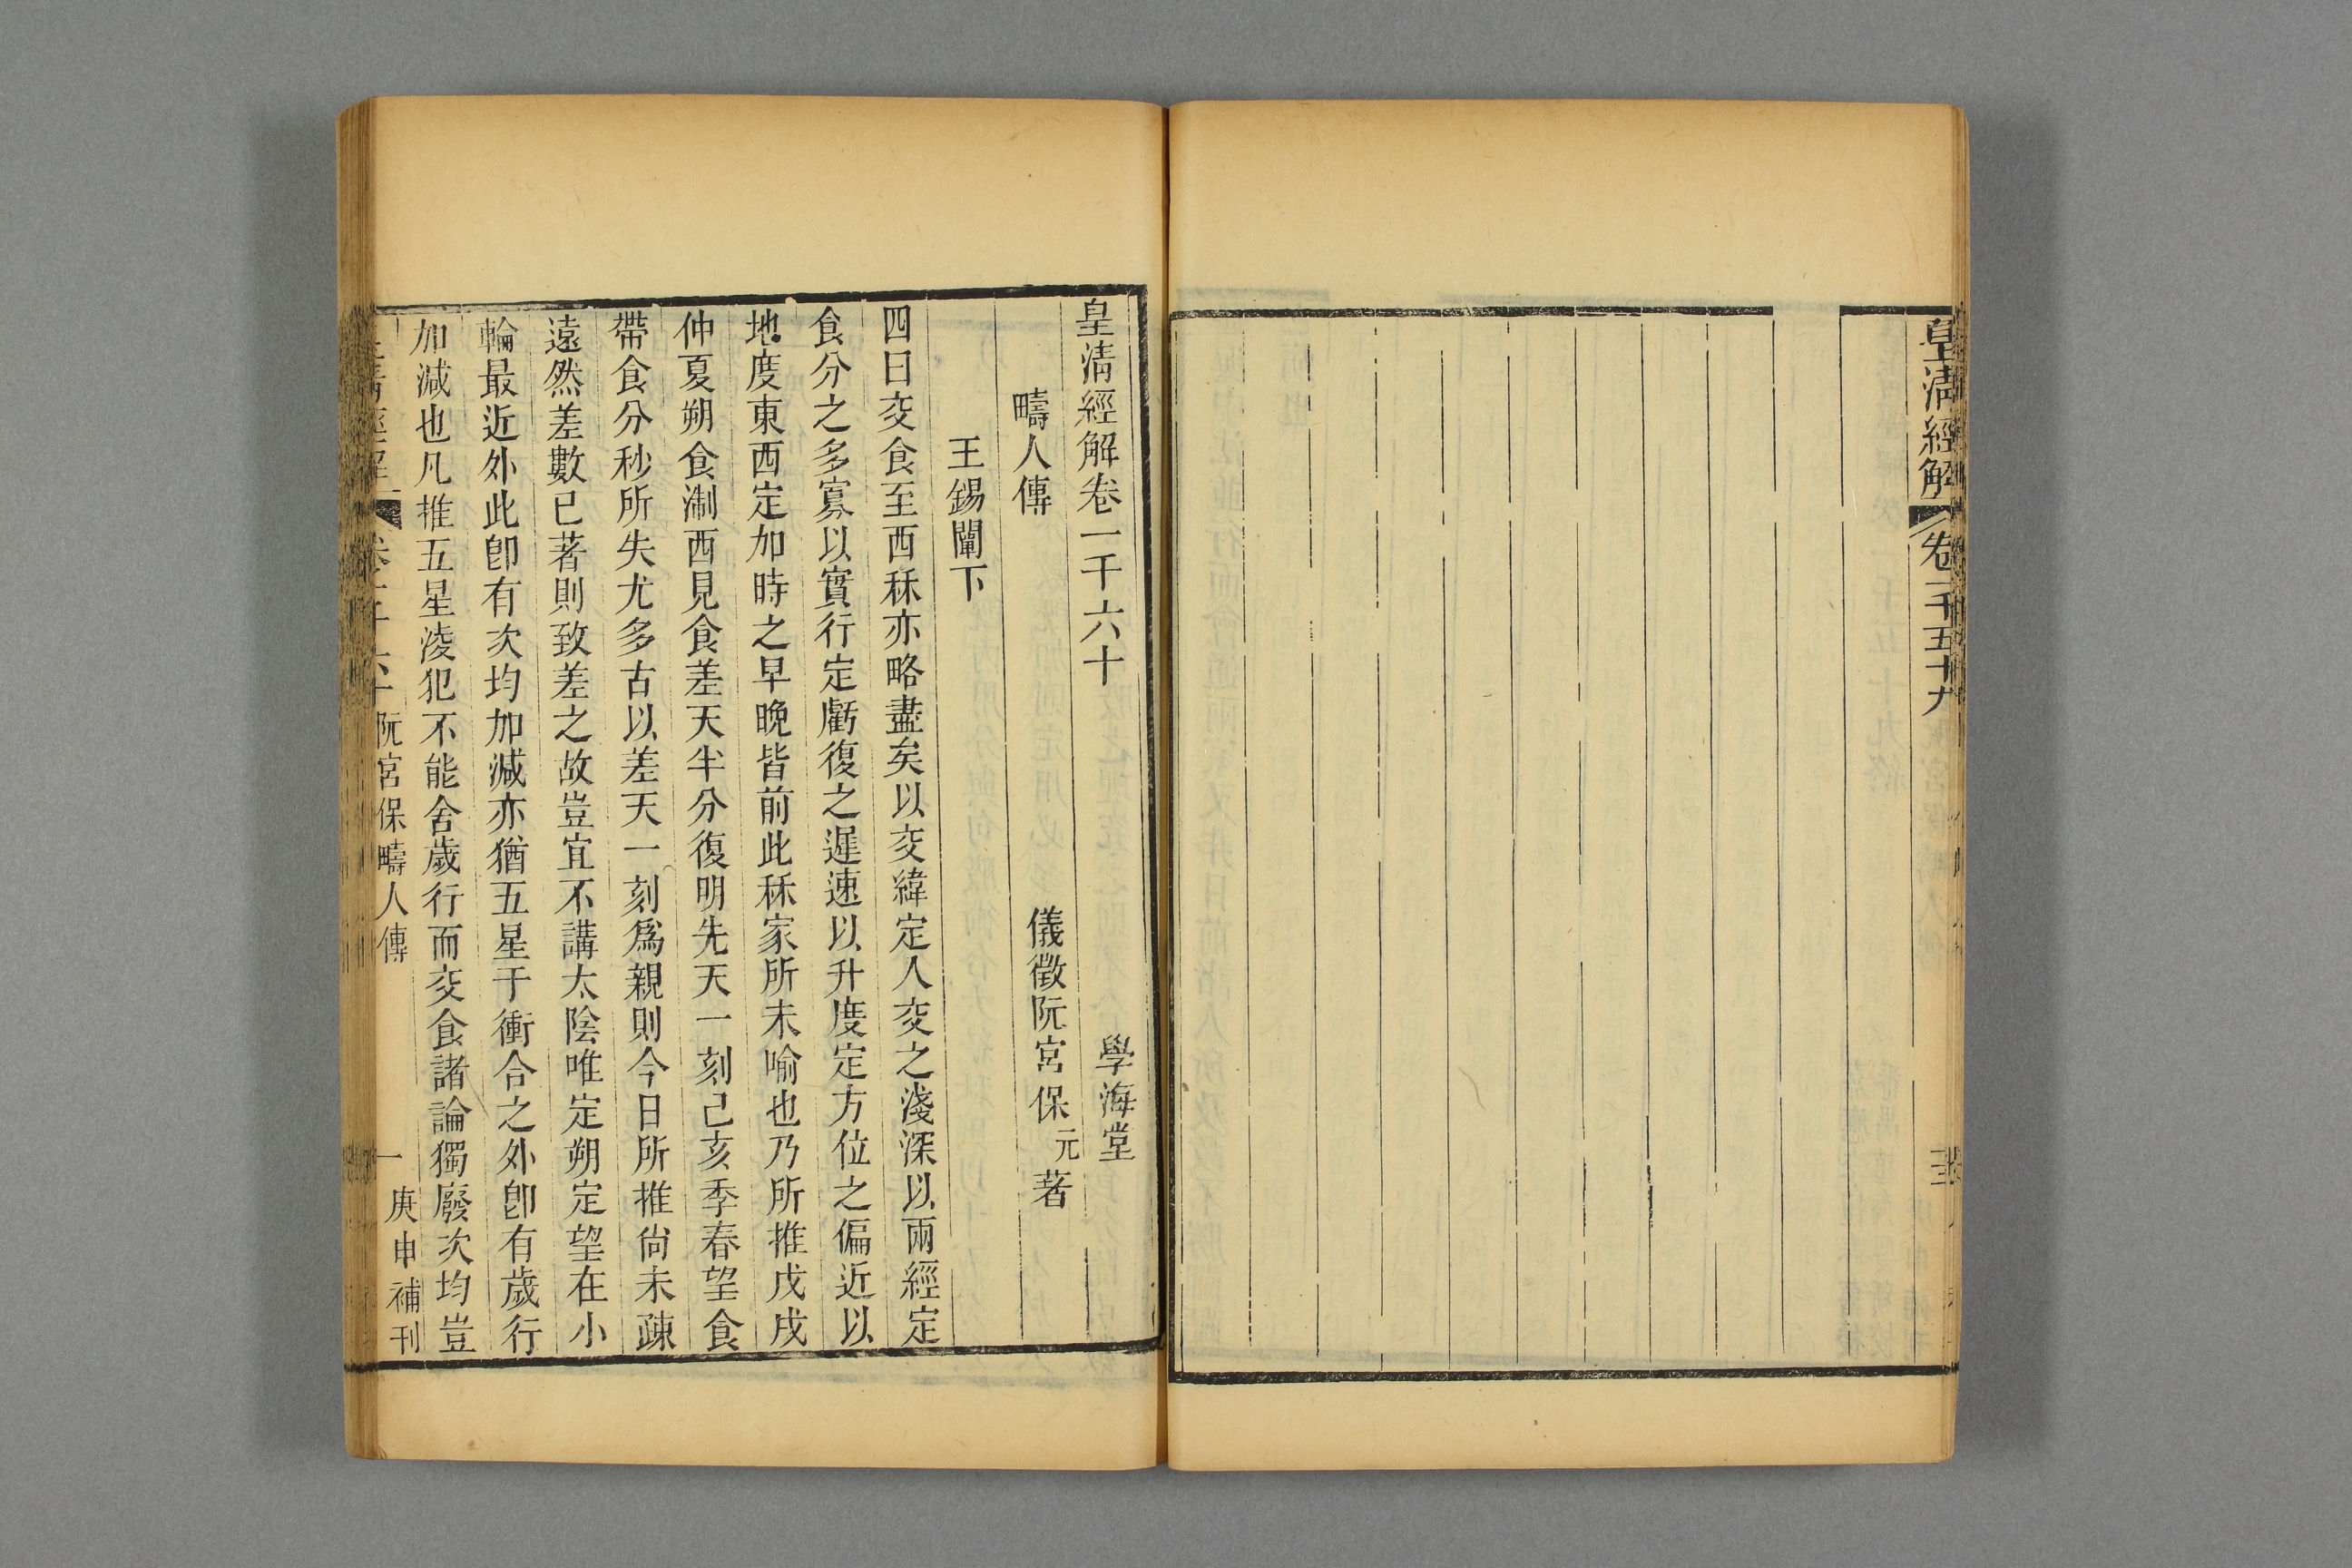 皇清經解
卷一千五十九
皇清經解卷一千六十
學海堂
疇人傳
儀徵阮宮保元著
王錫闡下
四曰交食至西秝亦略盡矣以交緯定入交之淺深以兩經定
食分之多寡以實行定虧復之遲速以升度定方位之偏近以
地度東西定加時之早晚皆前此秝家所未喻也乃所推戊戌
仲夏朔食淛西見食差天半分復明先天一刻己亥季春望食
帶食分秒所失尤多古以差天一刻爲親則今日所推尙未疎
遠然差數已著則致差之故豈宜不講太陰唯定朔定望在小
輪最近外此卽有次均加減亦猶五星于衝合之外卽有歲行
加減也凡推五星淩犯不能舍歲行而交食諸論獨廢次均豈
阮宮保疇人傳
一
庚申補刊